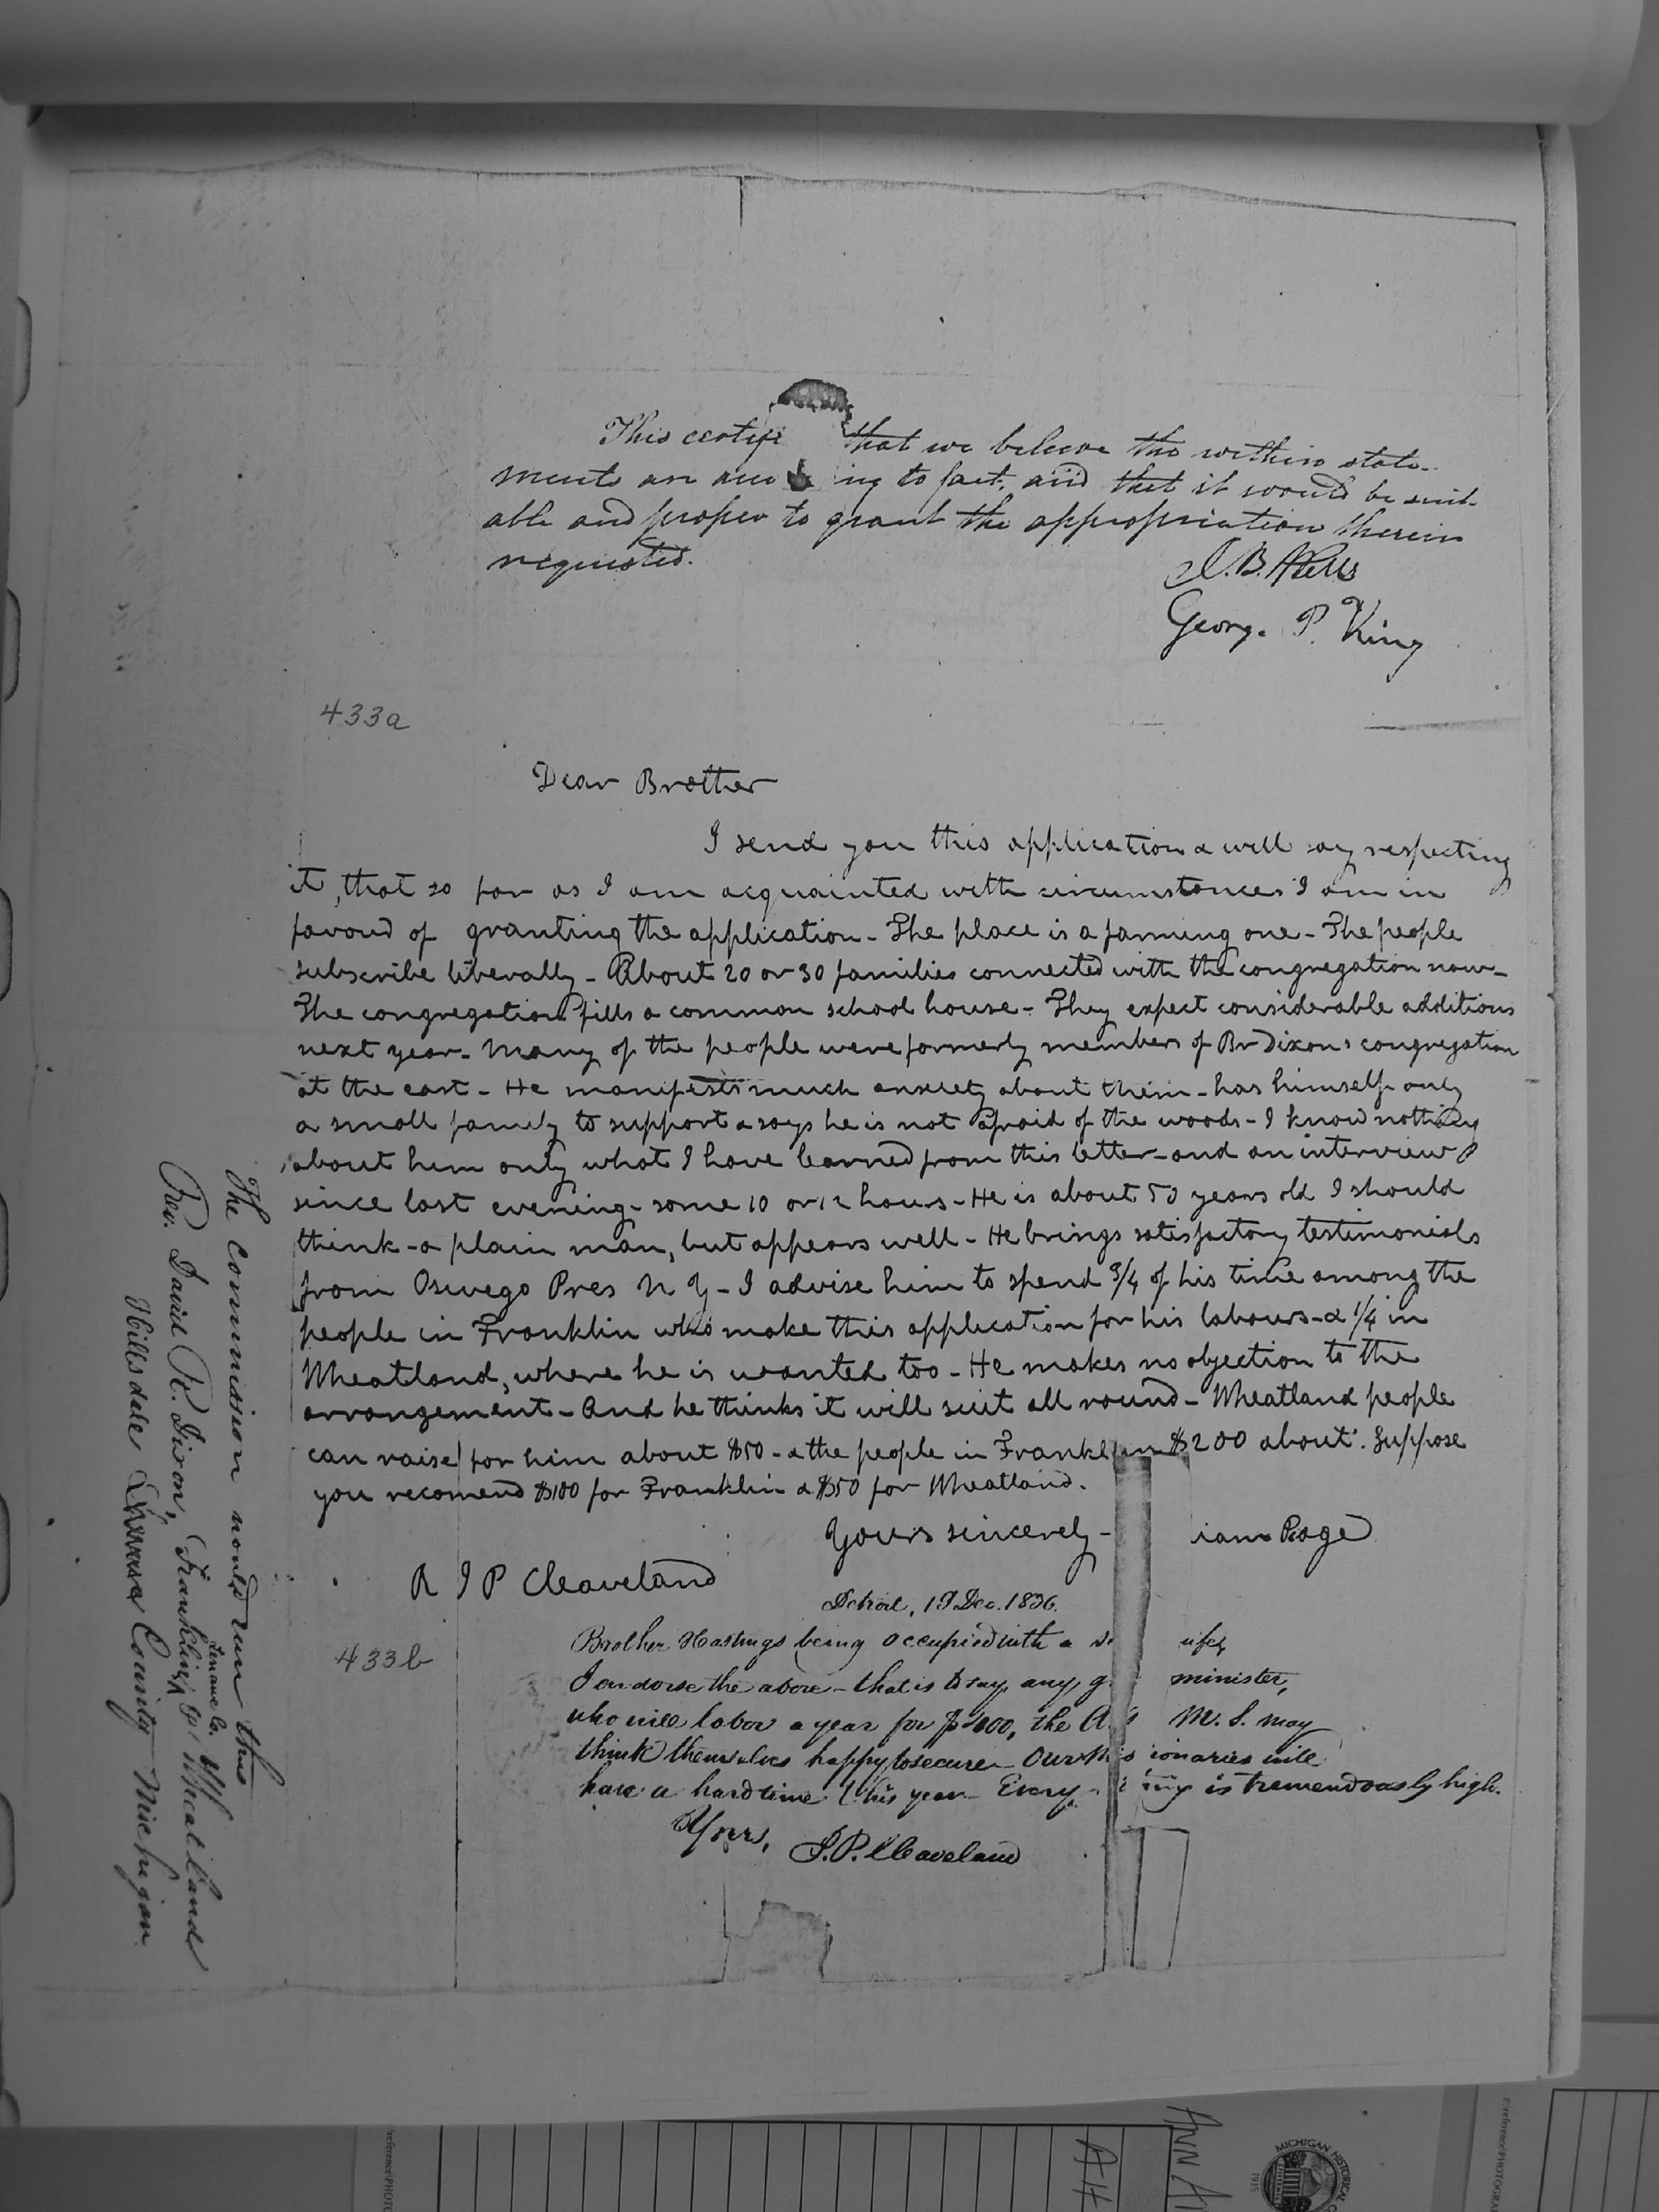 This certifi that we believe the within state-
ments are acco ing to fact, and that it would be suit-
able and proper to grant the appropriation therein
requested.
George P. King
433a
Dear Brother
I send you this application & will say respecting
it, that so far as I am acquainted with circumstances I am in
favour of granting the application - The place is a farming one - The people
subscribe liberally - About 20 or 30 families connected with the congregation now -
The congregation fills a common school house - They expect considerable additions
next year - Many of the people were formerly members of Br Dixons congregation
at the east - He manifests much anxiety about them - has himself only
a small family to support & says he is not afraid of the woods - I know nothing
about him only what I have learned from this letter - and an interview
since last evening - some 10 or 12 hours - He is about 50 years old I should
think - a plain man, but appears well - He brings satisfactory testimonials
from Oswego Pres N Y - I advise him to spend 3/4 of his time among the
people in Franklin who make this application for his labours - & 1/4 in
Wheatland, where he is wanted too - He makes no objection to the
arrangement - And he thinks it will suit all round - Wheatland people
can raise for him about $50 - & the people in Franklin $200 about. Suppose
you recomend $100 for Franklin & $50 for Wheatland.
Yours sincerely - iam Page
R J P Cleaveland
Detroit, 19 Dec. 1836.
433b
Brother Hastings being occupied with a wife,
I endorse the above - that is to say, any g minister,
who will labor a year for $400, the A. M. S. may
think themselves happy to secure - Our Missionaries will
have a hard time this year - Every ing is tremendously high.
Yours, J. P. Cleaveland
The Commission would run thus
Rev. David R. Dixon, Franklin, Lenawe Co. & Wheatland
Hillsdale County Michigan
MICHIGAN HISTORICAL